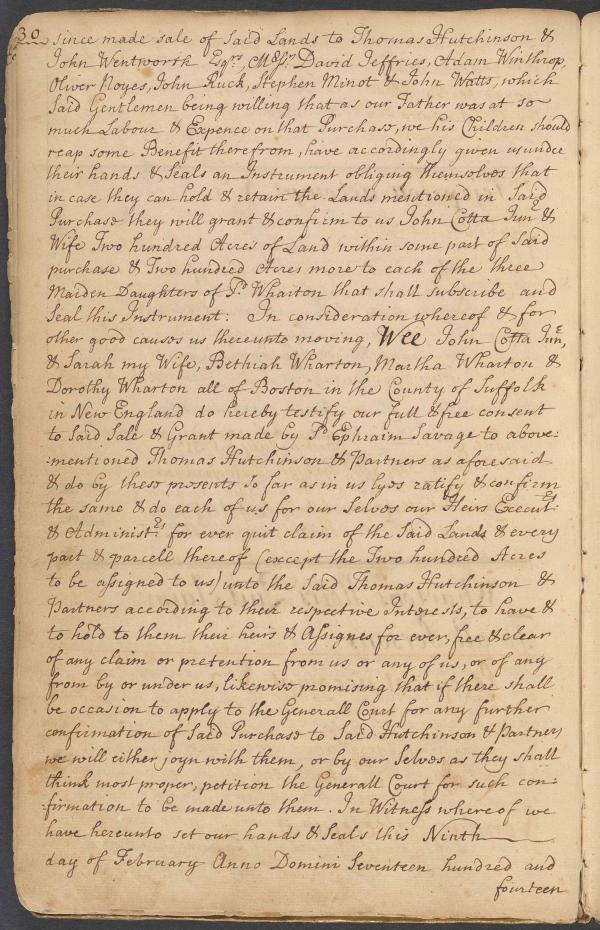 30
since made sale of said Lands to Thomas Hutchinson &
John Wentworth Esqrs, Messrs David Jeffries, Adam Winthrop,
Oliver Noyes, John Ruck, Stephen Minot & John Watts, which
Said Gentlemen being willing that as our Father was at so
much Labour & Expence on that Purchase, we his Children should
reap some Benefit therefrom, have accordingly given us under
their hands & Seals an Instrument obliging themselves that
in case they can hold & retain the Lands mentioned in Said
Purchase they will grant & confirm to us John Cotta Junr &
Wife Two hundred Acres of Land within some part of Said
purchase & Two hundred Acres more to each of the three
Maiden Daughters of Sd Wharton that shall subscribe and
Seal this Instrument: In consideration whereof & for
other good causes us thereunto moving, Wee John Cotta Junr,
& Sarah my Wife, Bethiah Wharton, Martha Wharton &
Dorothy Wharton all of Boston in the County of Suffolk
in New England do hereby testify our full & free consent
to Said Sale & Grant made by Sd Ephraim Savage to above=
=mentioned Thomas Hutchinson & Partners as aforesaid
& do by these presents so far as in us lyes ratify & confirm
the same & do each of us for our Selves our Heirs Executrs
& Administrs for ever quit claim of the Said Lands & every
part & parcell thereof (except the Two hundred Acres
to be assigned to us) unto the Said Thomas Hutchinson &
Partners according to their respective Interests, to have &
to hold to them their heirs & Assignes for ever, free & clear
of any claim or pretention from us or any of us, or of any
from by or under us, likewise promising that if there shall
be occasion to apply to the Generall Court for any further
confirmation of Said Purchase to Said Hutchinson & Partners
we will either joyn with them, or by our Selves as they shall
think most proper, petition the Generall Court for such con=
firmation to be made unto them. In Witness whereof we
have hereunto set our hands & Seals this Ninth
day of February Anno Domini Seventeen hundred and
fourteen